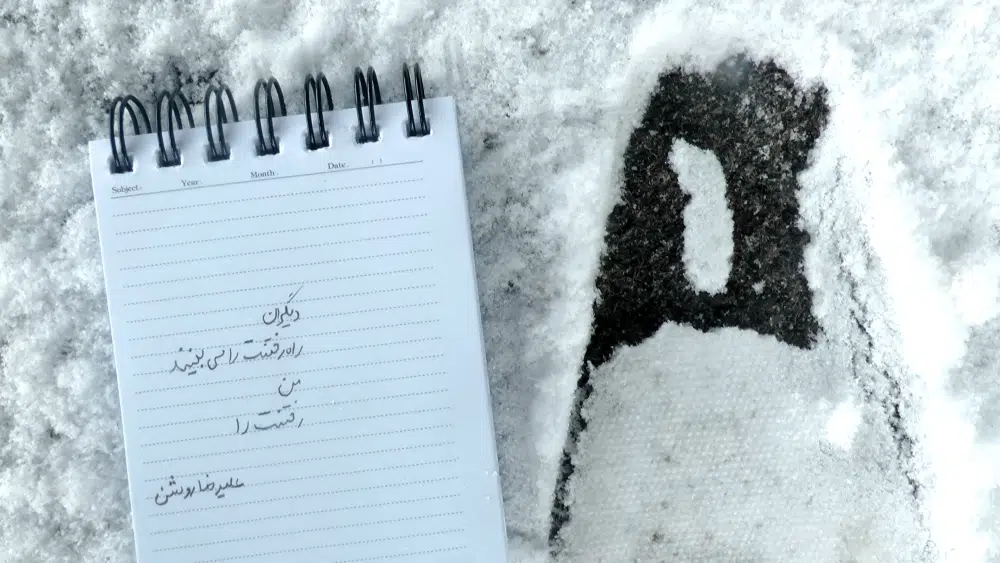 Subject: Year: Month: Date: ( )
دیگران
راه رفتنت را می بینند
من
رفتنت را
علیرضا روشن